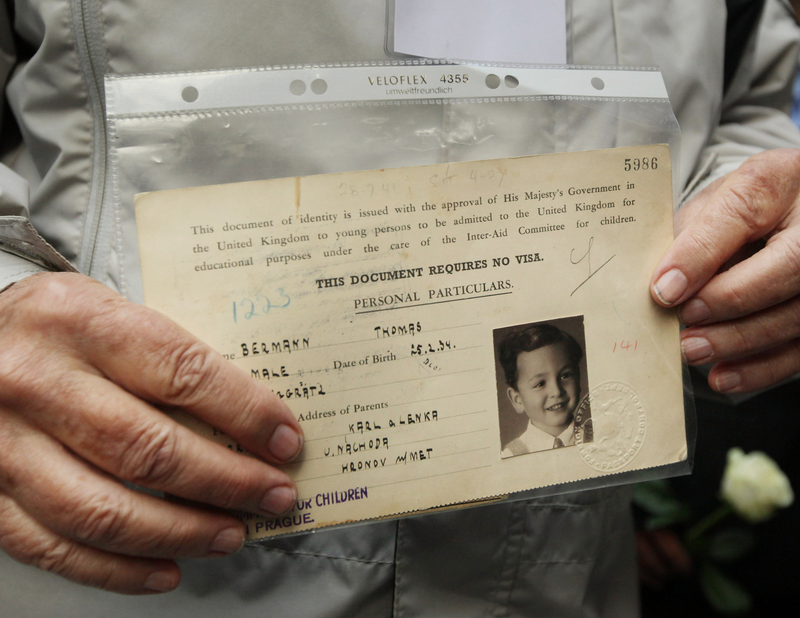 VELOFLEX 4355
umweltfreundlich
5986
This document of identity is issued with the approval of His Majesty's Government in
the United Kingdom to young persons to be admitted to the United Kingdom for
educational purposes under the care of the Inter-Aid Committee for children.
THIS DOCUMENT REQUIRES NO VISA.
1223
PERSONAL PARTICULARS.
BERMANN THOMAS
MALE Date of Birth 25.2.34.
141
Address of Parents
KARL a LENKA
U. NACHODA
HRONOV n/MET
FOR CHILDREN
PRAGUE.